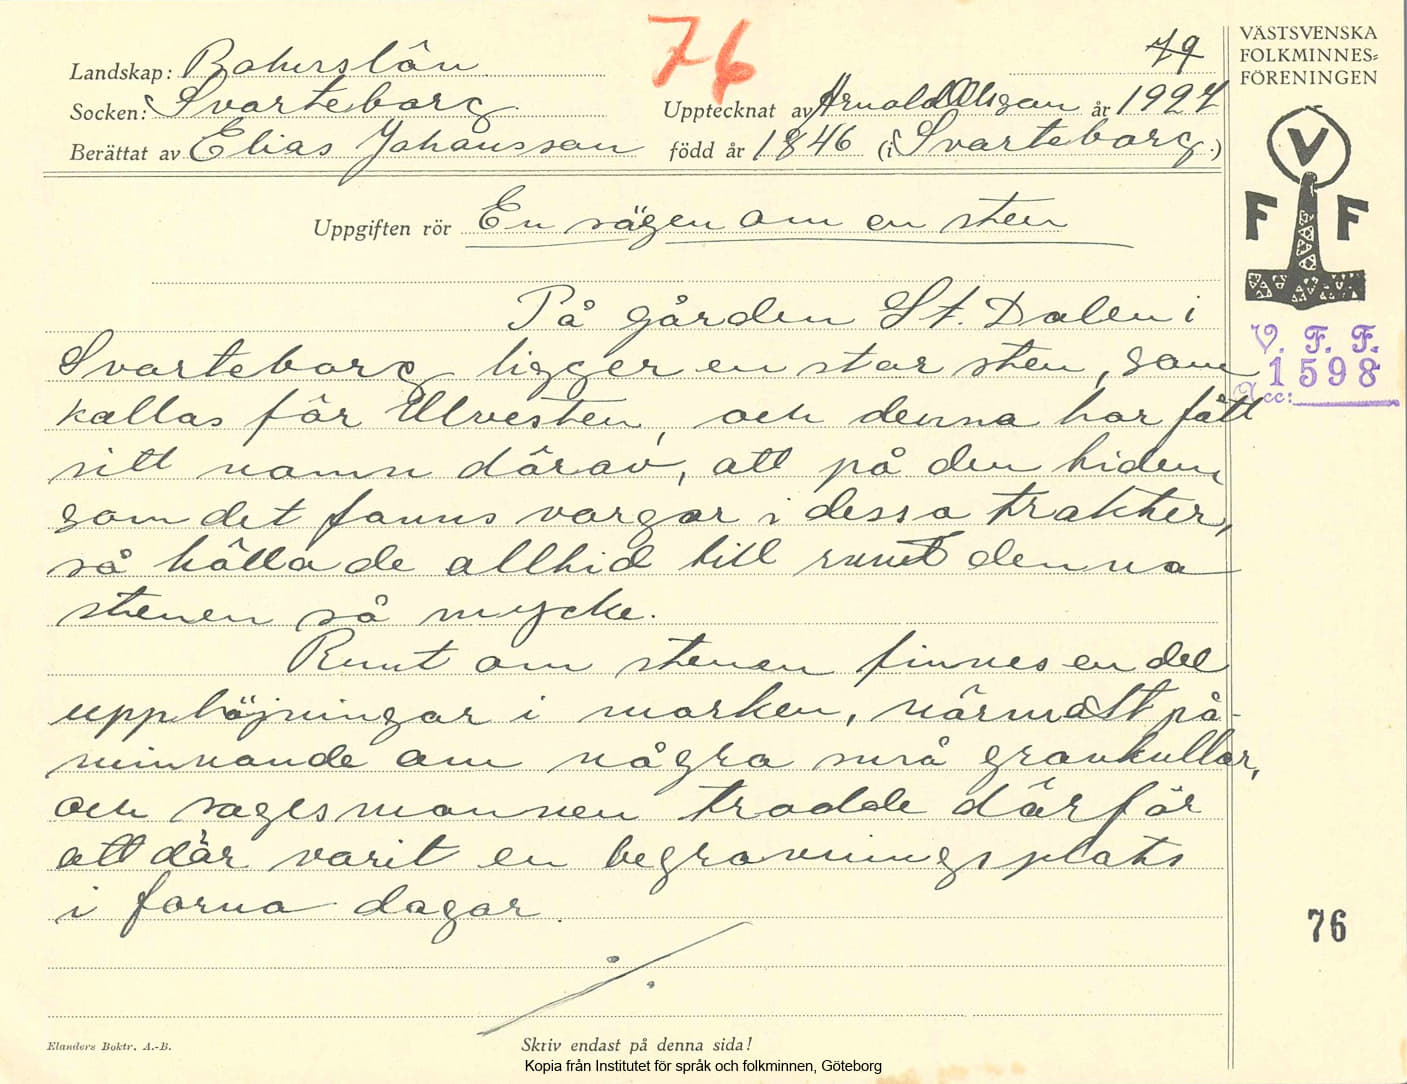 76
79
VÄSTSVENSKA
FOLKMINNES=
FÖRENINGEN
Landskap: Bohuslän
Socken: Svarteborg
Upptecknat av Arnold Olsson år 1927
Berättat av Elias Johansson född år 1846 (i Svarteborg.)
V
F F
Uppgiften rör En sägen om en sten
På gården St. Dalen i
Svarteborg ligger en stor sten, som
kallas för Ulvesten, och denna har fått
sitt namn därav, att på den tiden,
som det fanns vargar i dessa trakter,
så höllo de alltid till runt denna
stenen så mycke.
Runt om stenen finnes en del
upphöjningar i marken, närmast på-
minnande om några små gravkullar,
och sagesmannen trodde därför
att där varit en begravningsplats
i forna dagar.
V. F. F.
1598
Acc:
76
Elanders Boktr. A.-B.
Skriv endast på denna sida!
Kopia från Institutet för språk och folkminnen, Göteborg